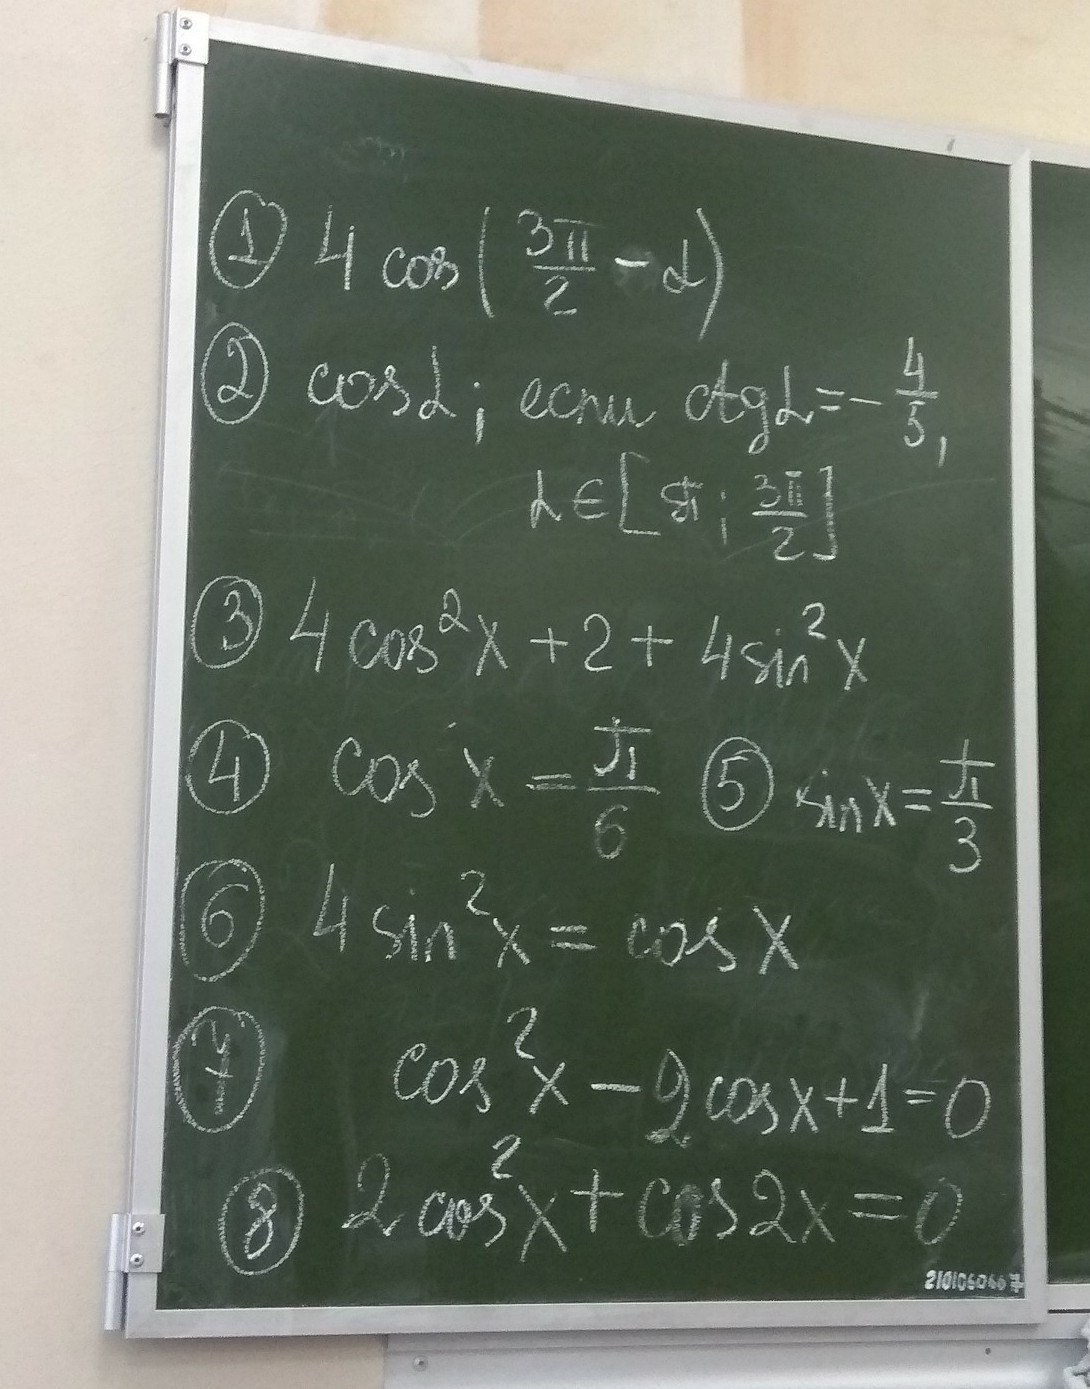 ① 4 cos(3π/2 - α)
② cosα; если ctgα = -4/5,
α∈[π; 3π/2]
③ 4cos²x + 2 + 4sin²x
④ cos x = π/6 ⑤ sinx = π/3
⑥ 4 sin²x = cos x
⑦ cos²x - 2cosx + 1 = 0
⑧ 2cos²x + cos2x = 0
2101060467